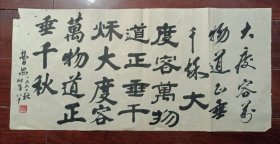 大度容万
物道正垂
千秌大
度容萬物
道正垂千
秌大度容
萬物道正
垂千秋